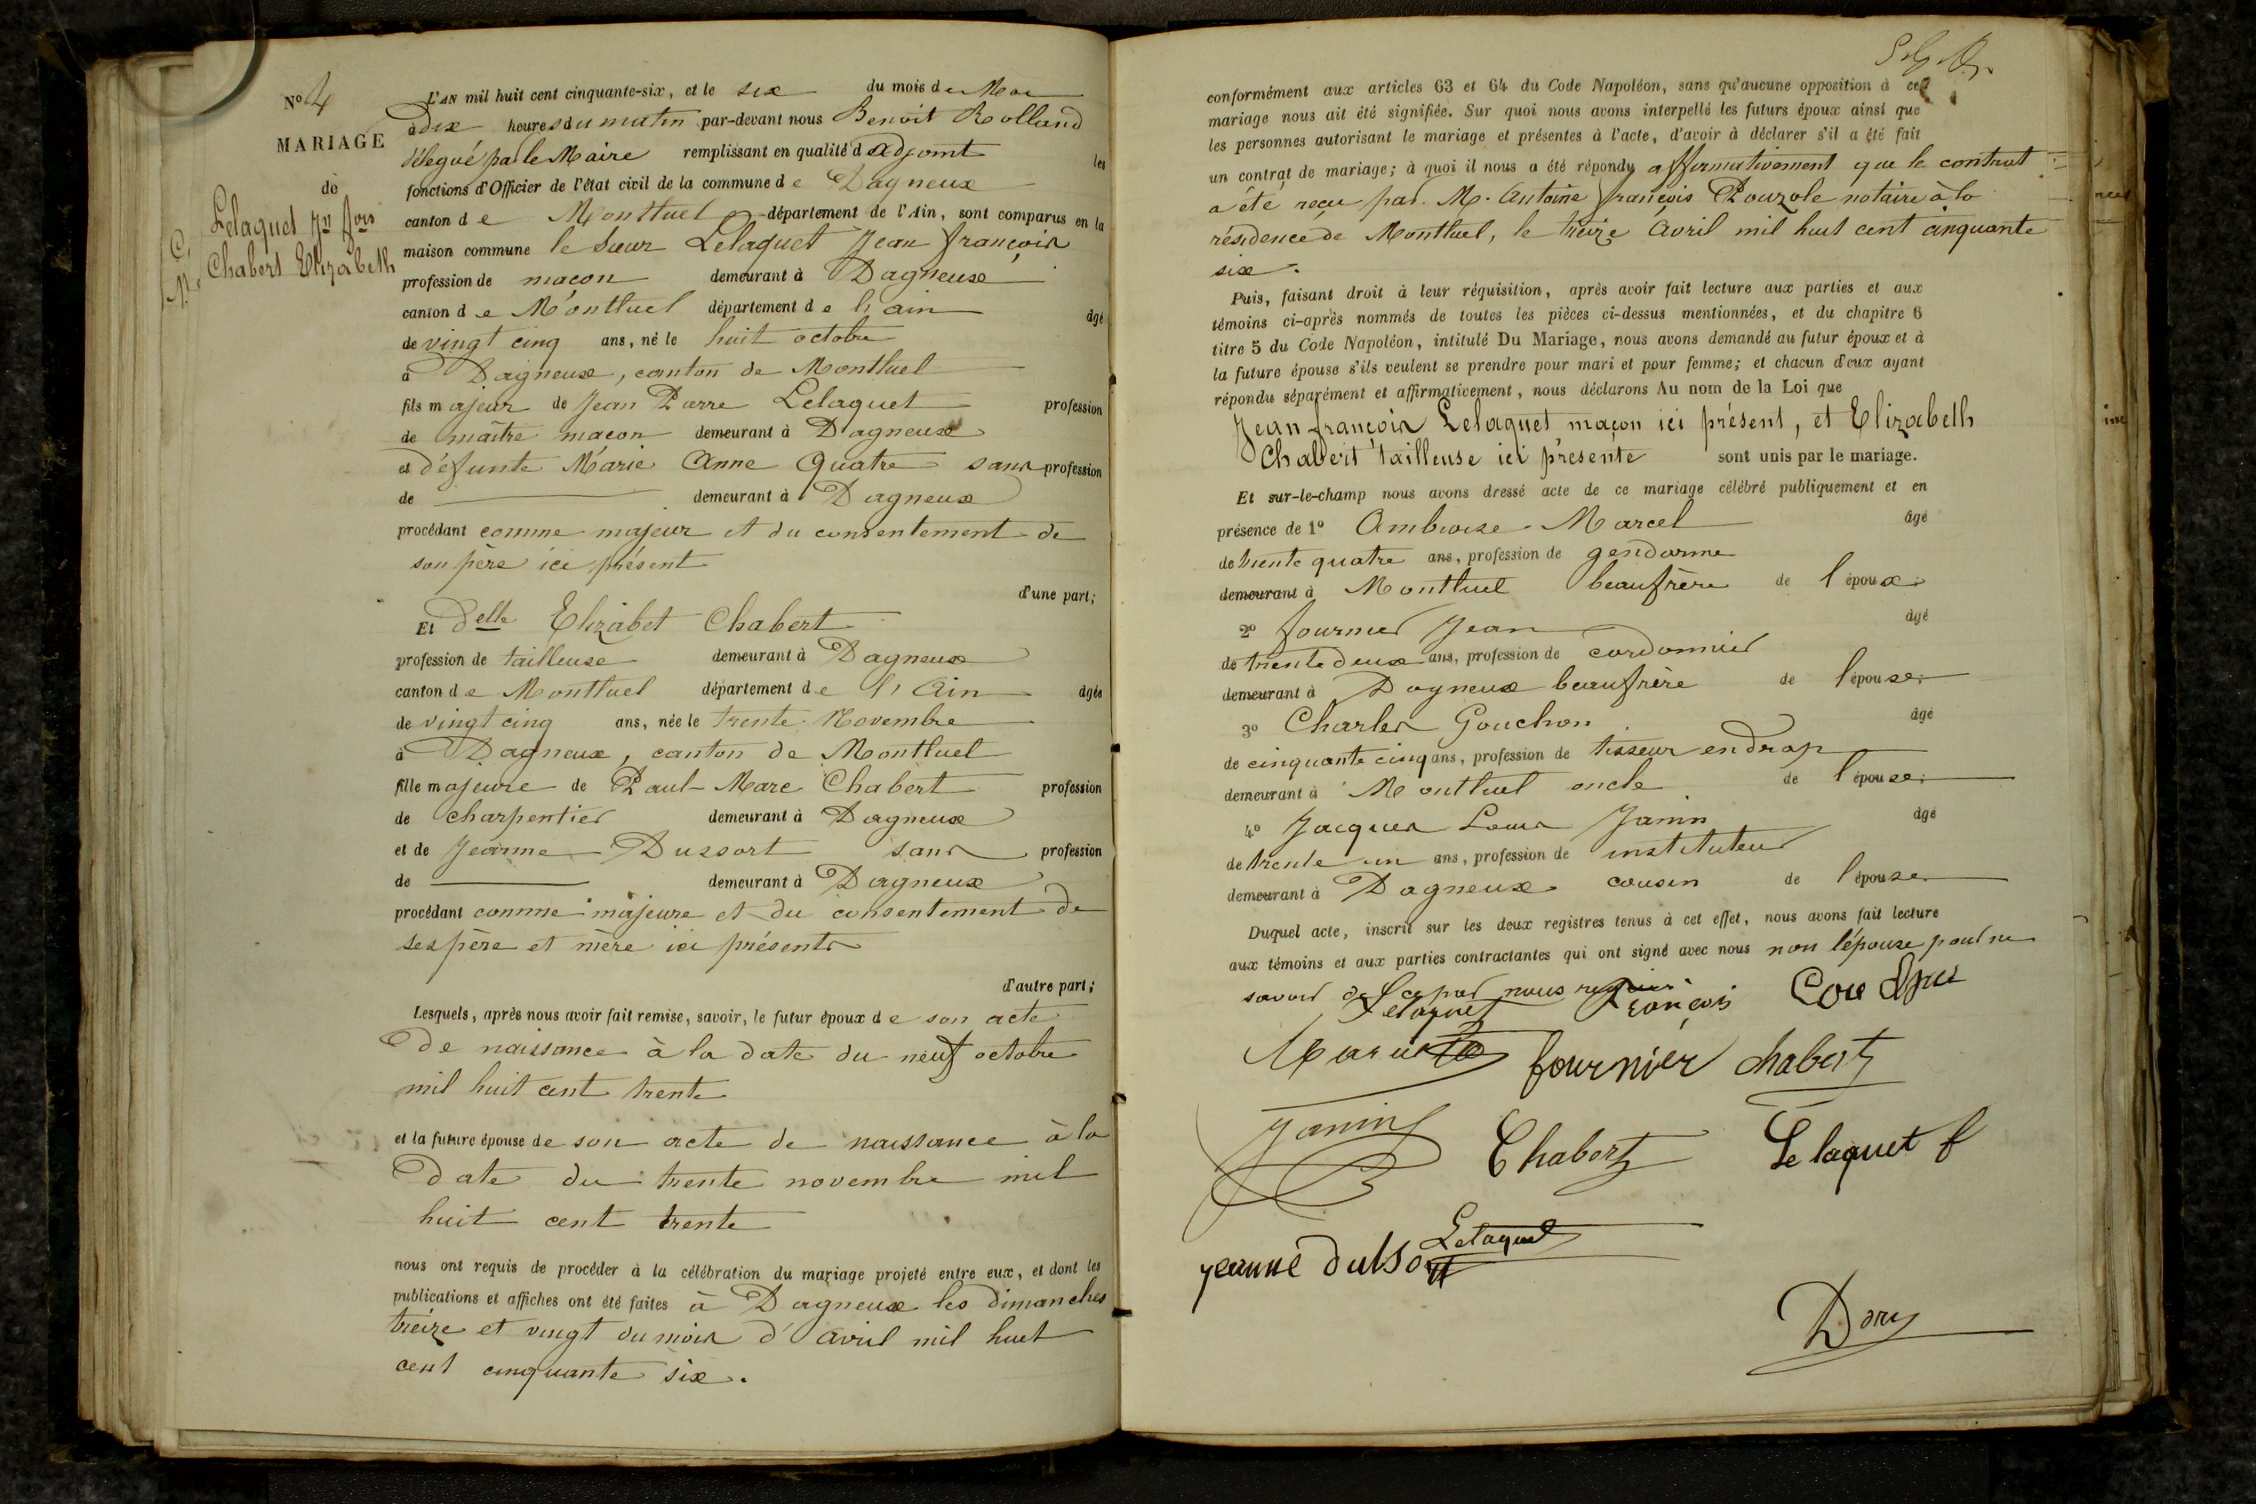 N° 4
MARIAGE
de
Lelaquet Jn fois
Chabert Elizabeth
L'AN mil huit cent cinquante-six, et le six du mois de Mai
à dix heures du matin par-devant nous Benoit Rolland
délegué par le Maire remplissant en qualité d'adjoint les
fonctions d'Officier de l'état civil de la commune de Dagneux
canton de Montluel département de l'Ain, sont comparus en la
maison commune le Sieur Lelaquet Jean françois
profession de maçon demeurant à Dagneux
canton de Montluel département de l'ain âgé
de vingt cinq ans, né le huit octobre
à Dagneux, canton de Montluel
fils majeur de Jean Pierre Lelaquet profession
de maître maçon demeurant à Dagneux
et défunte Marie Anne Quatre sans profession
de demeurant à Dagneux
procédant comme majeur et du consentement de
son père ici présent
d'une part;
Et delle Elizabet Chabert
profession de tailleuse demeurant à Dagneux
canton de Montluel département de l'Ain âgée
de vingt cinq ans, née le trente Novembre
à Dagneux, canton de Montluel
fille majeure de Paul Marc Chabert profession
de charpentier demeurant à Dagneux
et de Jeanne Dussort sans profession
de demeurant à Dagneux
procédant comme majeure et du consentement de
ses père et mère ici présents
d'autre part;
Lesquels, après nous avoir fait remise, savoir, le futur époux de son acte
de naissance à la date du neuf octobre
mil huit cent trente
et la future épouse de son acte de naissance à la
date du trente novembre mil
huit cent trente
nous ont requis de procéder à la célébration du mariage projeté entre eux, et dont les
publications et affiches ont été faites à Dagneux les dimanches
treize et vingt du mois d'avril mil huit
cent cinquante six.
conformément aux articles 63 et 64 du Code Napoléon, sans qu'aucune opposition à ce
mariage nous ait été signifiée. Sur quoi nous avons interpellé les futurs époux ainsi que
les personnes autorisant le mariage et présentes à l'acte, d'avoir à déclarer s'il a été fait
un contrat de mariage; à quoi il nous a été répondu affirmativement que le contrat
a été reçu par M. Antoine françois Pouzole notaire à la
résidence de Montluel, le treize Avril mil huit cent cinquante
six.
Puis, faisant droit à leur réquisition, après avoir fait lecture aux parties et aux
témoins ci-après nommés de toutes les pièces ci-dessus mentionnées, et du chapitre 6
titre 5 du Code Napoléon, intitulé Du Mariage, nous avons demandé au futur époux et à
la future épouse s'ils veulent se prendre pour mari et pour femme; et chacun d'eux ayant
répondu séparément et affirmativement, nous déclarons Au nom de la Loi que
Jean françois Lelaquet maçon ici présent, et Elizabeth
Chabert tailleuse ici présente sont unis par le mariage.
Et sur-le-champ nous avons dressé acte de ce mariage célébré publiquement et en
présence de 1° Ambroise Marcel âgé
de trente quatre ans, profession de gendarme
demeurant à Montluel beaufrère de l'époux
2° fournier Jean âgé
de trente deux ans, profession de cordonnier
demeurant à Dagneux beaufrère de l'épouse
3° Charles Gouchon âgé
de cinquante cinq ans, profession de tisseur en drap
demeurant à Montluel oncle de l'épouse
4° Jacques Louis Janin âgé
de trente un ans, profession de instituteur
demeurant à Dagneux cousin de l'épouse
Duquel acte, inscrit sur les deux registres tenus à cet effet, nous avons fait lecture
aux témoins et aux parties contractantes qui ont signé avec nous non l'épouse pour ne
savoir de ce par nous requis
Lelaquet François
fournier chabert
Janin Chabert Le laquet f
Lelaquet
jeanne dulsort